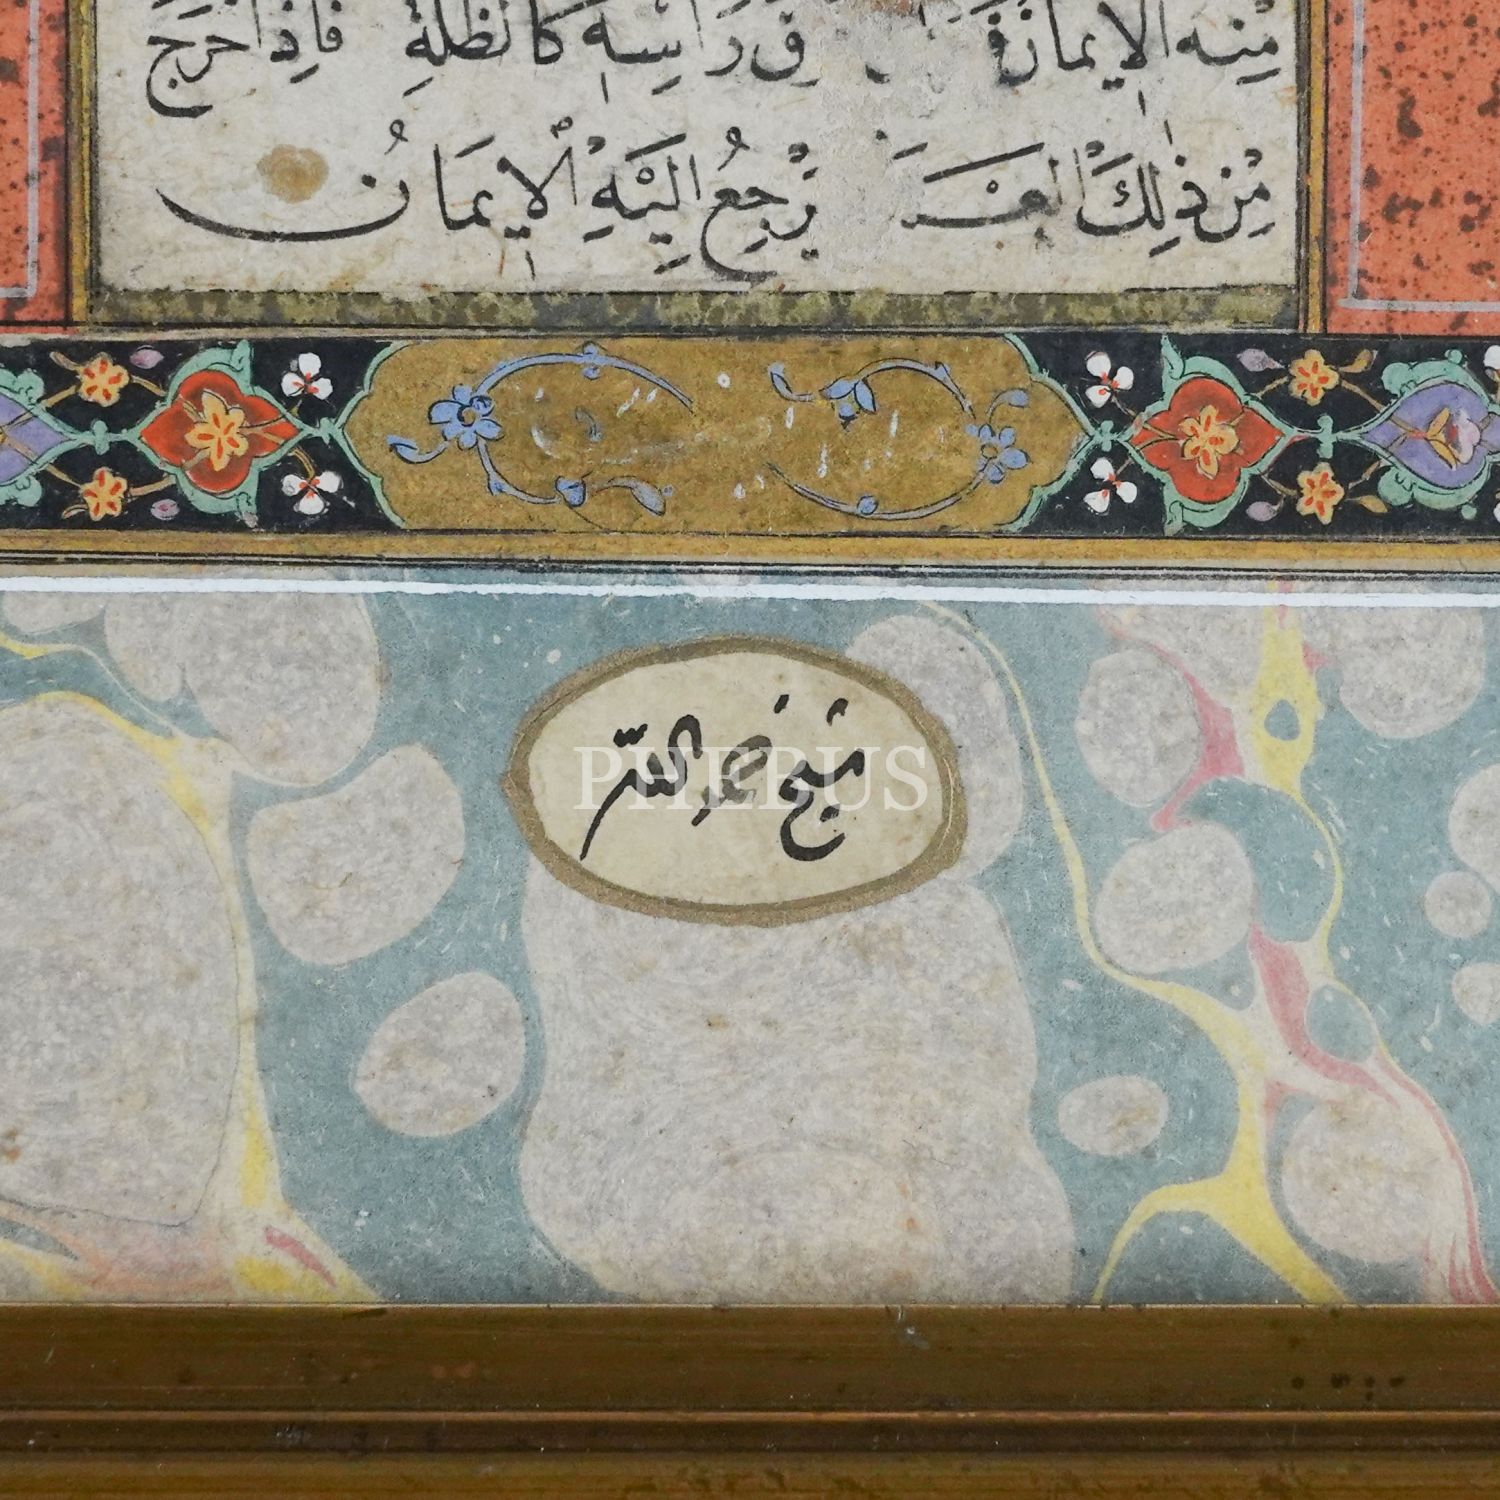 منه الإيمان فوق رأسه كالظلة فإذا خرج
مِن ذٰلِكَ العَمَل يَرْجِعُ إلَيْهِ الْإيمَانُ
شيخ حمد الله
PHEBUS